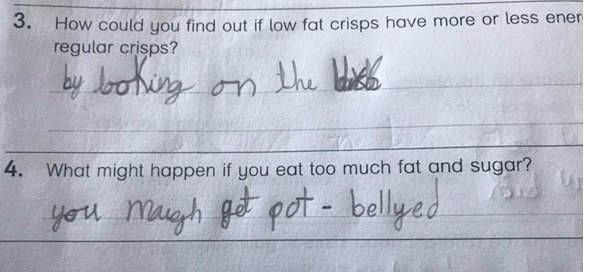 3. How could you find out if low fat crisps have more or less ener
regular crisps?
by looking on the
4. What might happen if you eat too much fat and sugar?
you maugh get pot-bellyed